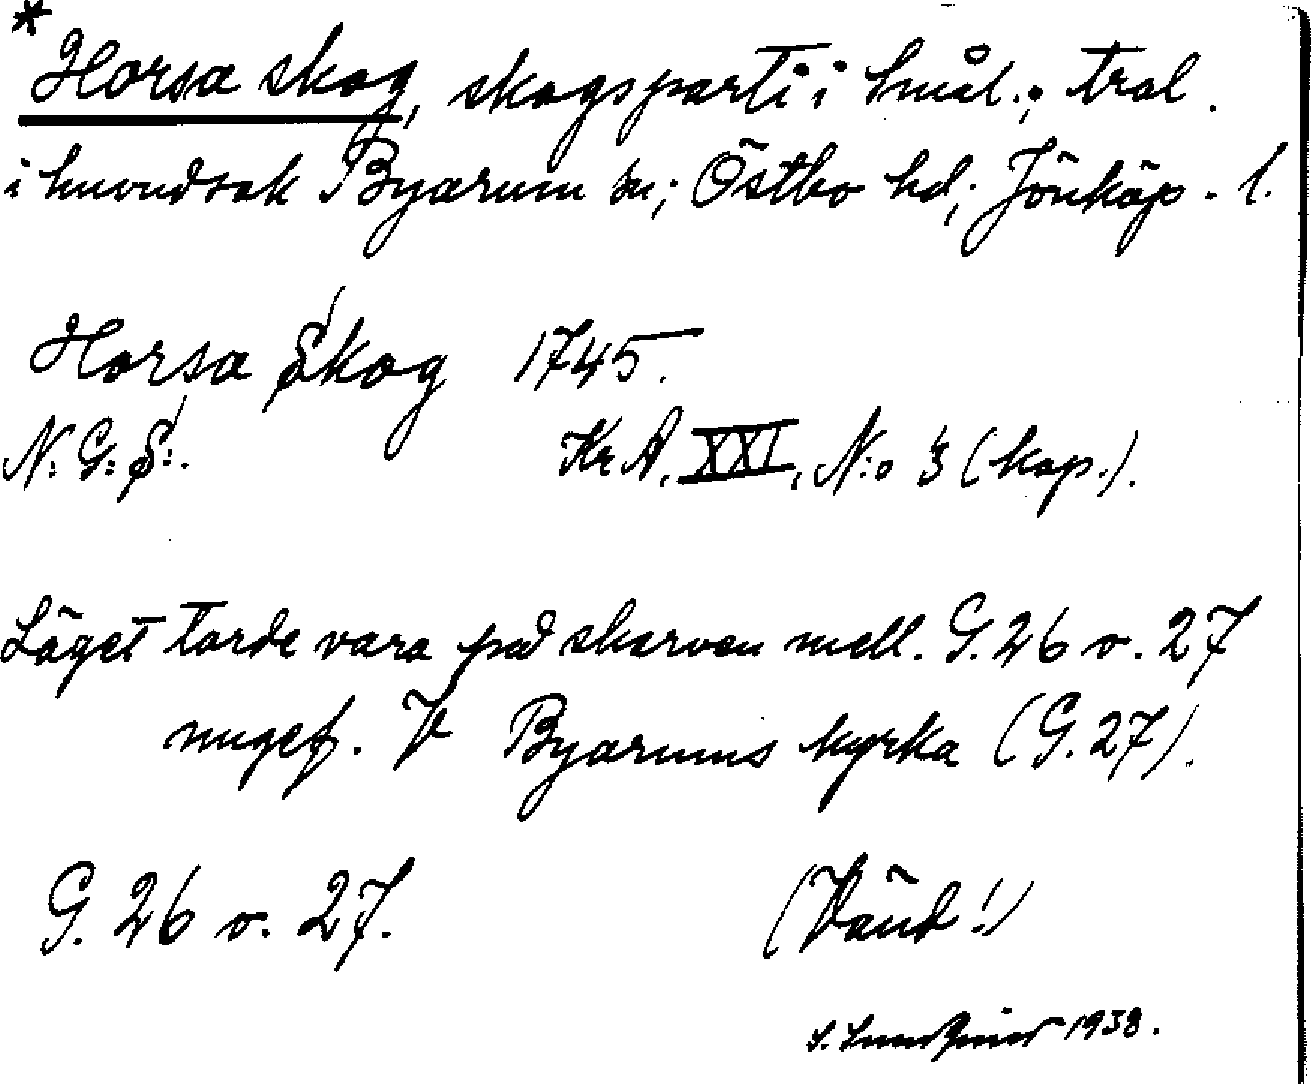 * Horsa skog, skogsparti i Smål.; trol.
i huvudsak Byarum sn; Östbo hd; Jönköp. l.
Horsa Skog 1745.
N: G: S:. Kr. A. XXI, N:o 3 (kop.).
Läget torde vara på skarven mell. G. 26 o. 27
ungef. V Byarums kyrka (G. 27).
G. 26 o. 27. (Vänd!)
1938.